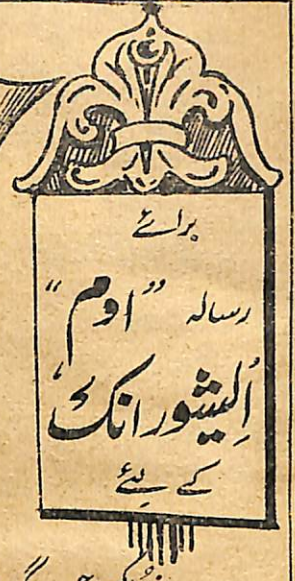 برائے
رسالہ "اوم"
اِلیشور انک
کے لئے